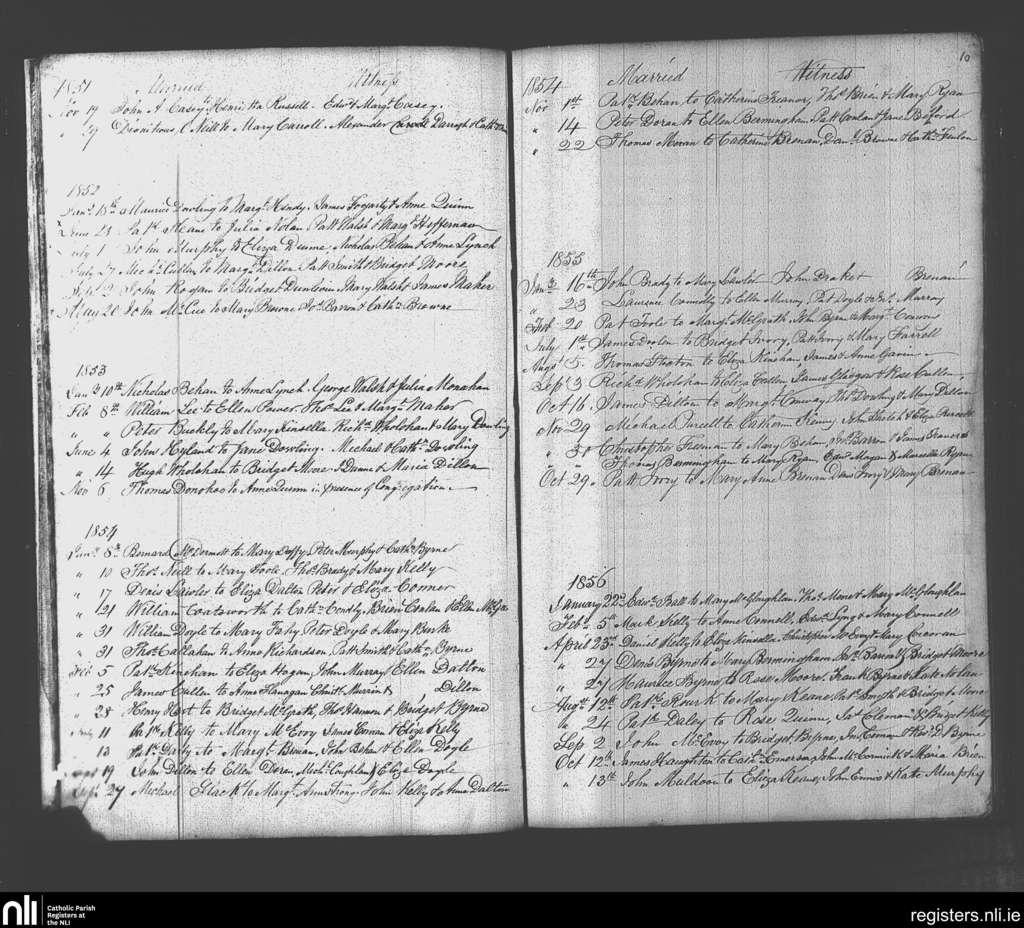 1851 Married Witness
Nov 19 John A Casey to Henrietta Russell. Edwd & Margt Casey.
" 19 Dionitious Neill to Mary Carroll. Alexander Carroll Darragh & Cathn
1852
Jany 18th Maurice Dowling to Margt Hendy. James Fogarty & Anne Quinn
June 23 Patk Keane to Julia Nolan Patt Walsh & Margt Heffernan
July 1 John Murphy to Eliza Deume Nicholas Behan & Anne Lynch
July 27 Cullen to Margt Dillon Patt Smith & Bridget Moore
Sept 2 John Hogan to Bridget Dunleven Mary Walsh & James Maher
May 20 John McCue to Mary Browne Jos. Barron & Cathn Browne
1853
Jany 10th Nicholas Behan to Anne Lynch. George Walsh & Julia Monahan
Feb 8th William Lee to Ellen Power. Thos Lee & Margt Maher
" " Peter Buckly to Mary Kinsella Richd Wholohan & Mary Dowling
June 4 John Hyland to Jane Dowling. Michael & Cathn Dowling
" 14 Hugh Wholohan to Bridget Moore & Maria Dillon
Nov 6 Thomas Donohoe to Anne Quinn in presence of Congregation.
1854
Jany 8th Bernard McDermott to Mary Duffy. Peter Murphy & Cathn Byrne
" 10 Thos Neill to Mary Toole. Thos Brady & Mary Kelly
" 17 Denis Lawler to Eliza Dalton Peter & Eliza Conner
" 21 William Coatsworth to Cathn Conolly, Brien Conlan & Ellen
" 31 William Doyle to Mary Fahy. Peter Doyle & Mary Burke
" 31 Thos Callahan to Anne Richardson. Patt Smith & Cathn Byrne
Feb 5 Patk Kinehan to Eliza Hagan, John Murray Ellen Dalton
" 25 James Cullen to Anne Flanagan Christr Murrin & Dillon
" 28 Henry Hart to Bridget McGrath, Thos Hannon & Bridget Byrne
July 11 Patk Kelly to Mary McEvoy James Connor & Eliza Kelly
" 13 Patk Daly to Margt Brenan, John Behan & Ellen Doyle
Augt 19 John Dillon to Ellen Doran Michl Coughlan & Eliza Doyle
Sept 27 Michael Slack to Margt Armstrong. John Kelly & Anne Dalton
10
1854 Married Witness
Nov 1st Patk Behan to Catherine Treanor, Thos Brien & Mary Ryan
" 14 Peter Doran to Ellen Bermingham. Patt Conlan & Jane Boford
" 22 Thomas Moran to Catherine Brenan, Danl Browne & Cathn Fenlon
1855
Jany 16th John Brady to Mary Lawler John Drake & Brenan
" 23 Laurence Connolly to Ellen Murray, Pat Doyle & Murray
Feb 20 Pat Toole to Margt McGrath John Byrne & Margt
July 1st James Doolen to Bridget Ivory, Patt Ivory & Mary Farrell
Augst 5. Thomas to Eliza Kinshan James & Anne Gavin.
Sep 3 Richd Wholohan to Eliza Cullen James & Rose Cullen.
Oct 16. James Dillon to Margt Thos Dowling & Mary Dillon
Nov 29 Michael Purcell to Catherine Kenny John & Eliza Purcell
" 30 Christopher to Mary Behan, Barron & James
" Thomas Bermingham to Mary Ryan Edwd & Marcella Ryan
Oct 29. Patt Ivory to Mary Anne Brenan Denis Ivory & Mary Brenan
1856
January 22nd Edwd Ball to Mary McGloughlan. Thos & Mary McGloughlan
Feby 5th Mack Kelly to Anne Connell, Edwd Lyng & Mary Connell
April 23rd Daniel Kelly to Eliza Kinsella. Christopher McEvoy & Mary Corcoran
" 27 Denis Byrne to Mary Bermingham. Barrett & Bridget Moore
" 27 Maurice Byrne to Rose Moore. Frank Byrne & Kate Nolan
Augst 12th Patk Rourk to Mary Keane Thos Smyth & Bridget
" 24 Patk Daley to Rose Quinn, Jas Coleman & Bridget Kelly
Sep 2 John McEvoy to Bridget Byrne, Jas Connor & Byrne
Oct 12th James Naughton to Cathn Emerson, John McCormick & Maria Brien
" 13th John Muldoon to Eliza Keane, John Ennis & Kate Murphy
nli Catholic Parish
Registers at
the NLI
registers.nli.ie